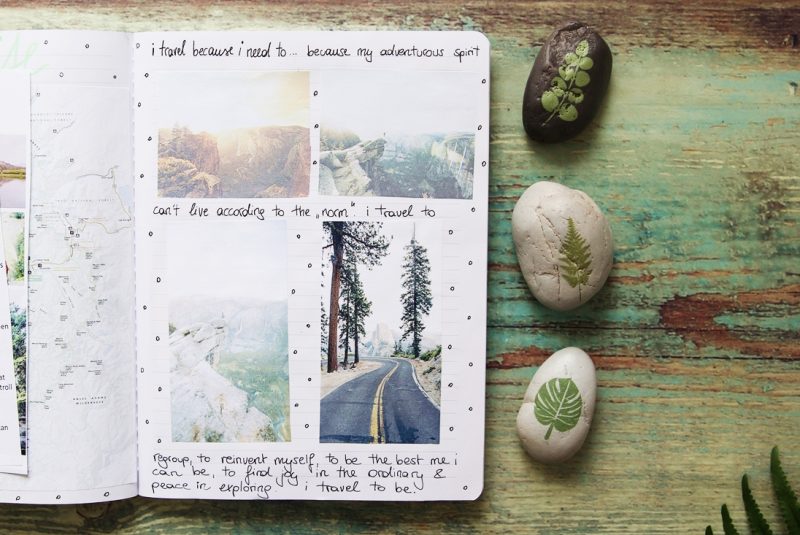 i travel because i need to... because my adventurous spirit
can't live according to the "norm". i travel to
regroup, to reinvent myself, to be the best me i
can be, to find joy in the ordinary &
peace in exploring. i travel to be.